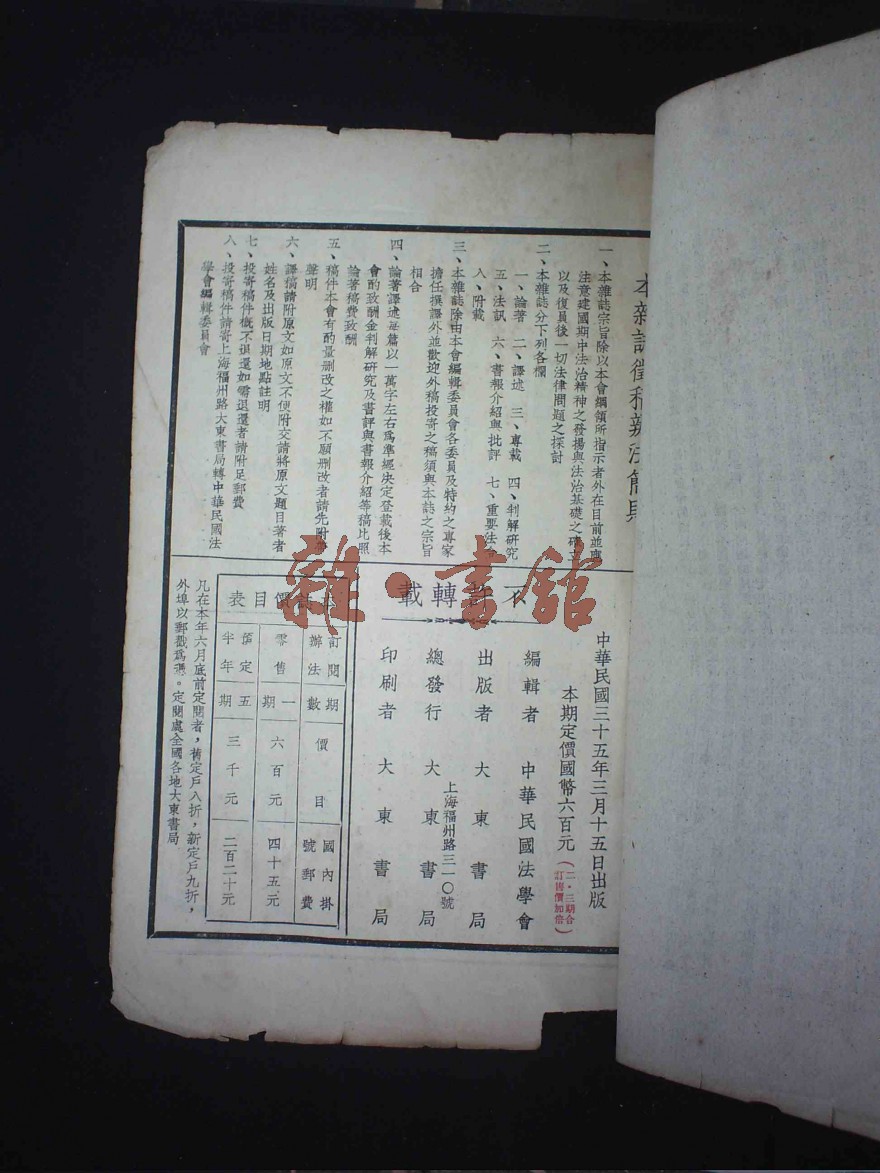 本雜誌徵稿辦法簡
一、本雜誌宗旨除以本會綱領所指示者外在目前並
注意建國期中法治精神之發揚與法治基礎之
以及復員後一切法律問題之探討
二、本雜誌分下列各欄
一、論著 二、譯述 三、專載 四、判解研究
五、法訊 六、書報介紹與批評 七、重要法
八、附載
三、本雜誌除由本會編輯委員會各委員及特約之專家
擔任撰譯外並歡迎外稿投寄之稿須與本誌之宗旨
相合
四、論著譯述每篇以一萬字左右爲準經決定登載後本
會酌致酬金判解研究及書評與書報介紹等稿比照
論著稿費致酬
五、稿件本會有酌量刪改之權如不願刪改者請先附
聲明
六、譯稿請附原文如原文不便附交請將原文題目著者
姓名及出版日期地點註明
七、投寄稿件概不退還如需退還者請附足郵費
八、投寄稿件請寄上海福州路大東書局轉中華民國法
學會編輯委員會
中華民國三十五年三月十五日出版
本期定價國幣六百元
(二・三期合
訂售價加倍)
不許轉載
編輯者 中華民國法學會
出版者 大東書局
上海福州路三一〇號
總發行 大東書局
印刷者 大東書局
誌價目表
訂閱辦法 期數 價目 國內掛號郵費
零售 一期 六百元 四十五元
預定半年 五期 三千元 二百二十元
凡在本年六月底前定閱者，舊定戶八折，新定戶九折，
外埠以郵戳爲憑。定閱處全國各地大東書局
雜・書館